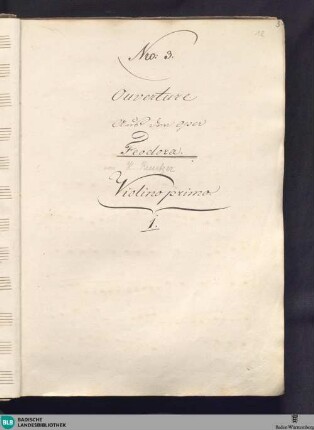 Nro: 3.
Ouverture
der Oper
Feodora.
Violino primo
1.
BLB BADISCHE
LANDESBIBLIOTHEK
Baden-Württemberg